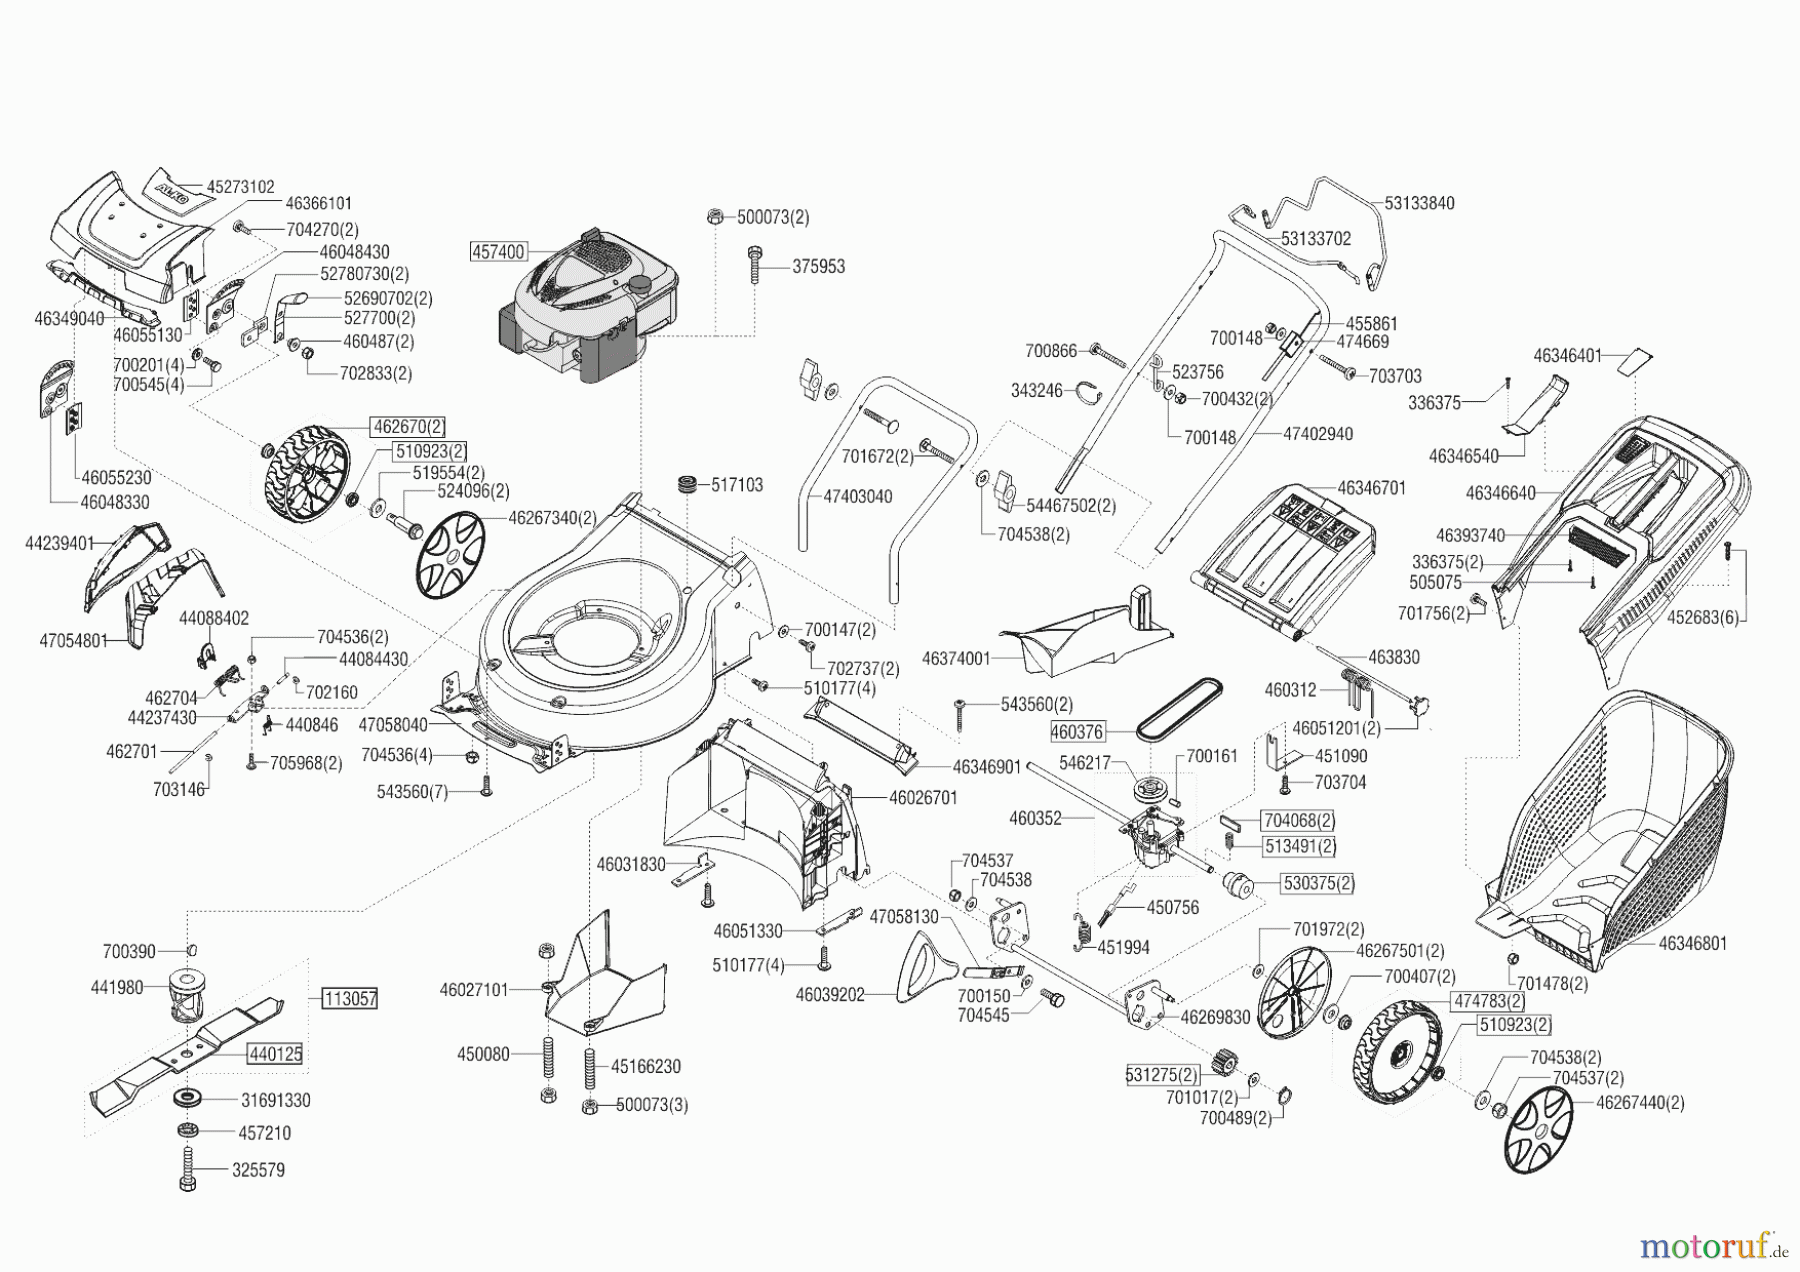 AL-KO
45273102
46366101
704270(2)
46048430
52780730(2)
52690702(2)
527700(2)
46349040
46055130
460487(2)
700201(4)
700545(4)
702833(2)
462670(2)
510923(2)
519554(2)
524096(2)
46267340(2)
46055230
46048330
44239401
47054801
44088402
704536(2)
44084430
462704
702160
44237430
440846
462701
705968(2)
703146
47058040
704536(4)
543560(7)
457400
500073(2)
375953
517103
701672(2)
47403040
54467502(2)
704538(2)
700147(2)
702737(2)
510177(4)
543560(2)
46346901
46026701
46031830
46051330
510177(4)
46027101
450080
45166230
500073(3)
700390
441980
113057
440125
31691330
457210
325579
53133840
53133702
455861
700148
474669
700866
523756
703703
343246
700432(2)
700148
47402940
46346701
46374001
463830
460312
46051201(2)
460376
546217
700161
451090
703704
460352
704068(2)
513491(2)
530375(2)
450756
451994
704537
704538
47058130
46039202
700150
704545
46269830
701972(2)
46267501(2)
700407(2)
474783(2)
510923(2)
704538(2)
704537(2)
46267440(2)
531275(2)
701017(2)
700489(2)
46346401
336375
46346540
46346640
46393740
336375(2)
505075
701756(2)
452683(6)
46346801
701478(2)
motoruf.de